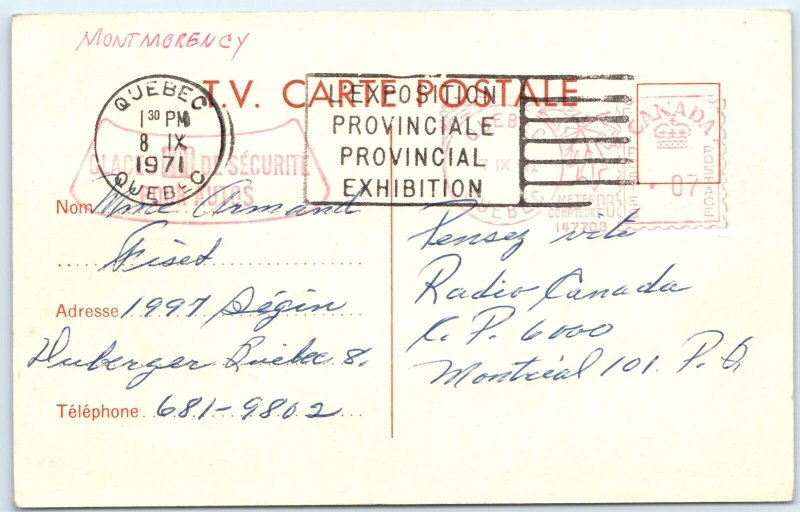 MONTMORENCY
T.V. CARTE POSTALE
QUEBEC
1 30 PM
8 IX
1971
QUEBEC
L'EXPOSITION
PROVINCIALE
PROVINCIAL
EXHIBITION
QUEBEC
7 IX
QUEBEC
METER
COMPTEUR
147703
CANADA
POSTAGE
07
GLACE DE SÉCURITÉ
AUTOS
Nom Mme Armand
Fiset
Adresse 1997 Ségin
Duberger Québec 8.
Téléphone 681-9802
Pensez vite
Radio Canada
C.P. 6000
Montréal 101 P.Q.